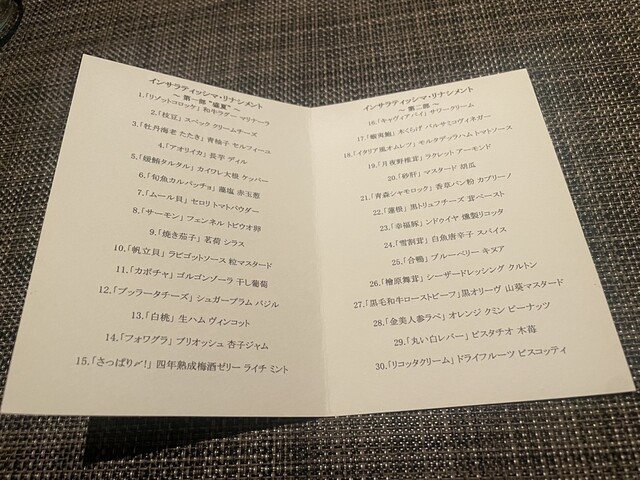 インサラティッシマ・リナシメント
～ 第一部 “盛夏” ～
1.「リゾットコロッケ」 和牛ラグー マリナーラ
2.「枝豆」 スペック クリームチーズ
3.「牡丹海老 たたき」 青柚子 セルフィーユ
4.「アオリイカ」 長芋 ディル
5.「鰹鮪タルタル」 カイワレ大根 ケッパー
6.「旬魚カルパッチョ」 藻塩 赤玉葱
7.「ムール貝」 セロリ トマトパウダー
8.「サーモン」 フェンネル トビウオ卵
9.「焼き茄子」 茗荷 シラス
10.「帆立貝」 ラビゴットソース 粒マスタード
11.「カボチャ」 ゴルゴンゾーラ 干し葡萄
12.「ブッラータチーズ」 シュガープラム バジル
13.「白桃」 生ハム ヴィンコット
14.「フォワグラ」 ブリオッシュ 杏子ジャム
15.「さっぱり〆!」 四年熟成梅酒ゼリー ライチ ミント
インサラティッシマ・リナシメント
～ 第二部 ～
16.「キャヴィアパイ」 サワークリーム
17.「蝦夷鮑」 木くらげ バルサミコヴィネガー
18.「イタリア風オムレツ」 モルタデッラハム トマトソース
19.「月夜野椎茸」 ラクレット アーモンド
20.「砂肝」 マスタード 胡瓜
21.「青森シャモロック」 香草パン粉 カプリーノ
22.「蓮根」 黒トリュフチーズ 茸ペースト
23.「幸福豚」 ンドゥイヤ 燻製リコッタ
24.「雪割茸」 白魚唐辛子 スパイス
25.「合鴨」 ブルーベリー キヌア
26.「檜原舞茸」 シーザードレッシング クルトン
27.「黒毛和牛ローストビーフ」 黒オリーヴ 山葵マスタード
28.「金美人参ラペ」 オレンジ クミン ピーナッツ
29.「丸い白レバー」 ピスタチオ 木苺
30.「リコッタクリーム」 ドライフルーツ ビスコッティ